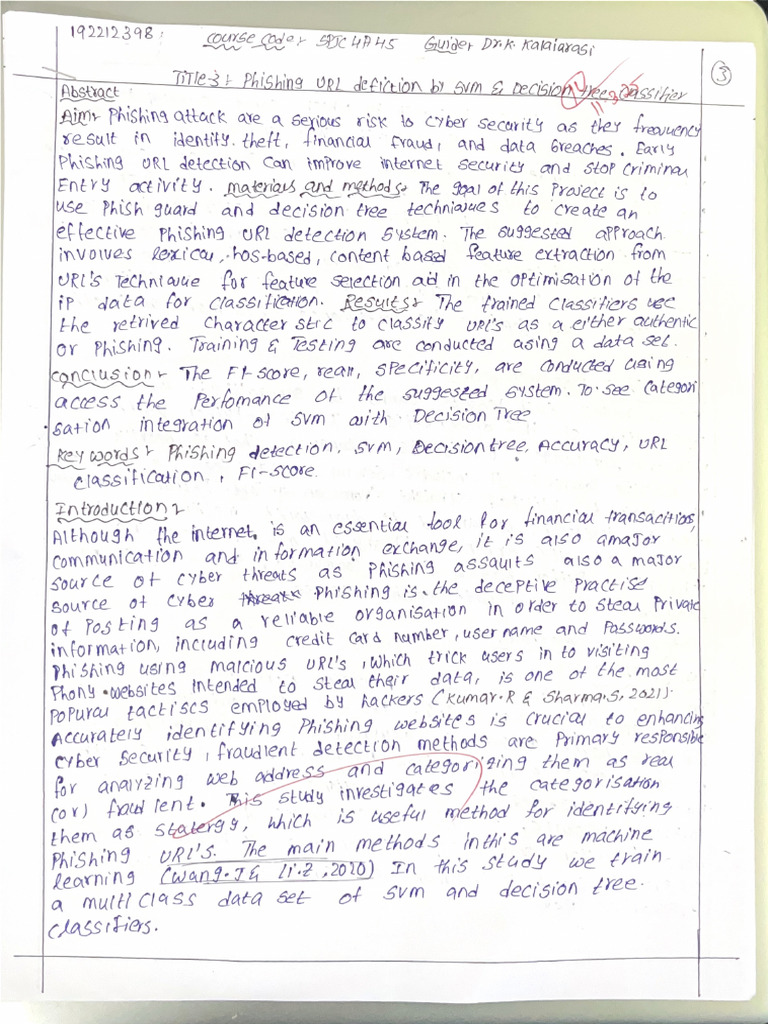 192212398 : Course Code: SPIC4A45 Guide: Dr.K. Kalaiarasi
3
Title-3: Phishing URL defiction by SVM & Decision Tree Classifier
Abstract
Aim: Phishing attack are a serious risk to cyber security as they frequency
result in identity theft, financial fraud, and data breaches. Early
Phishing URL detection can improve internet security and stop criminal
Entry activity. Materials and methods: The goal of this Project is to
use Phish guard and decision tree techniques to create an
effective Phishing URL detection system. The suggested approach
involves lexical, hos-based, content based feature extraction from
URL's Technique for feature selection aid in the optimisation of the
ip data for classification. Results: The trained classifiers use
the retrived characterstic to classify URL's as a either authentic
or Phishing. Training & Testing are conducted using a data set.
Conclusion: The F1-score, recall, specificity, are conducted using
access the Perfomance of the suggested system. To see categori
sation integration of SVM with Decision Tree
Key words: Phishing detection, SVM, Decision tree, Accuracy, URL
classification, F1-score.
Introduction:
Although the internet is an essential tool for financial transactions,
communication and information exchange, it is also a major
source of cyber threats as Phishing assaults also a major
source of cyber threats Phishing is the deceptive Practise
of Posting as a reliable organisation in order to steal Private
information, including credit card number, user name and Passwords.
Phishing using malcious URL's, which trick users in to visiting
Phony websites intended to steal their data, is one of the most
Popural tactiscs employed by hackers (Kumar.R & Sharma.S, 2021).
Accurately identifying Phishing websites is crucial to enhancing
cyber security, fraudlent detection methods are Primary responsible
for analyzing web address and categorizing them as real
(or) fraudlent. This study investigates the categorisation
them as statergy, which is useful method for identifying
Phishing URL's. The main methods in this are machine
learning (Wang.J & Li.Z, 2020) In this study we train
a multiclass data set of SVM and decision tree
classifiers.